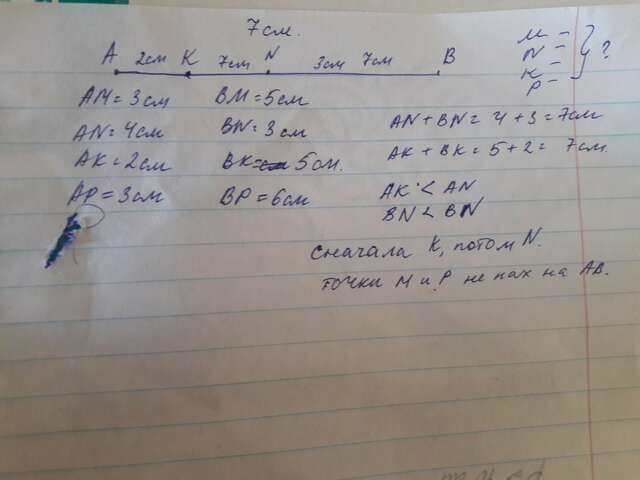 7см.
A 2см K 7см N 3см 7см B
M -
N -
K -
P -
} ?
AM = 3см BM = 5см
AN = 4см BN = 3см AN + BN = 4 + 3 = 7см
AK = 2см BK = 5см. AK + BK = 5 + 2 = 7см.
AP = 3см BP = 6см AK < AN
BN < BN
сначала K, потом N.
точки M и P не нах на AB.